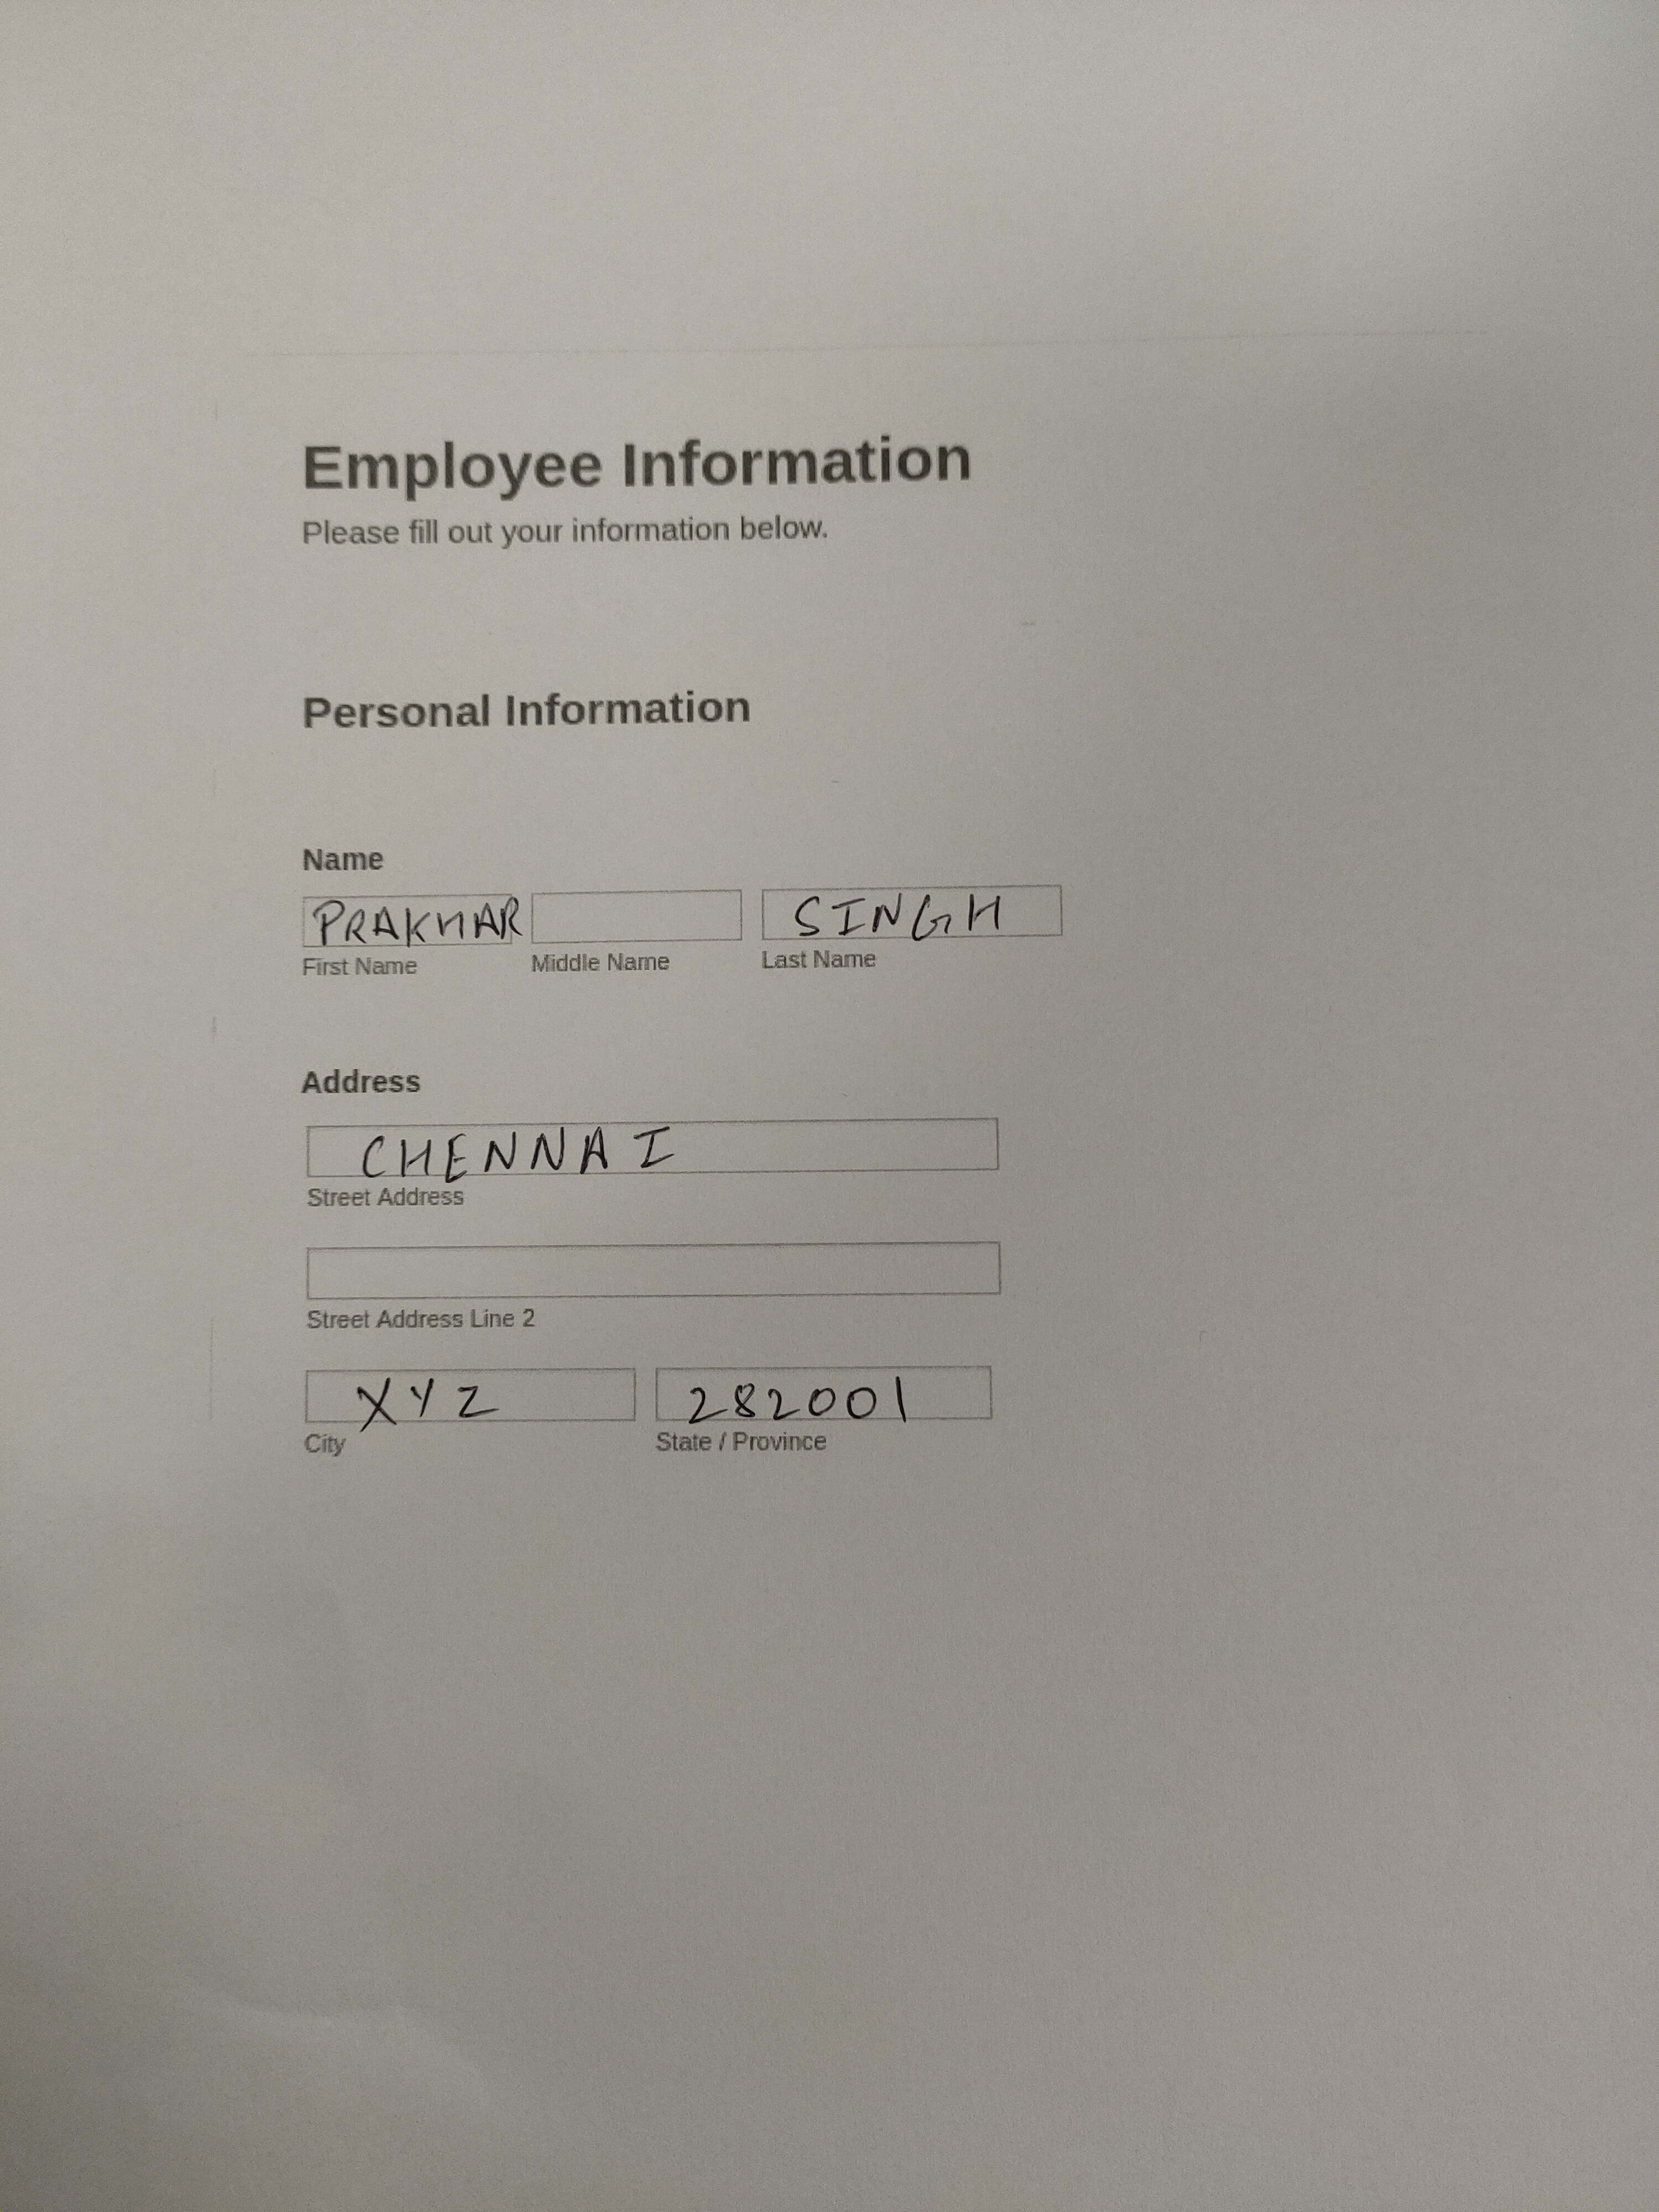 Employee Information
Please fill out your information below.
Personal Information
Name
PRAKHAR SINGH
First Name Middle Name Last Name
Address
CHENNAI
Street Address
Street Address Line 2
XYZ 282001
City State / Province